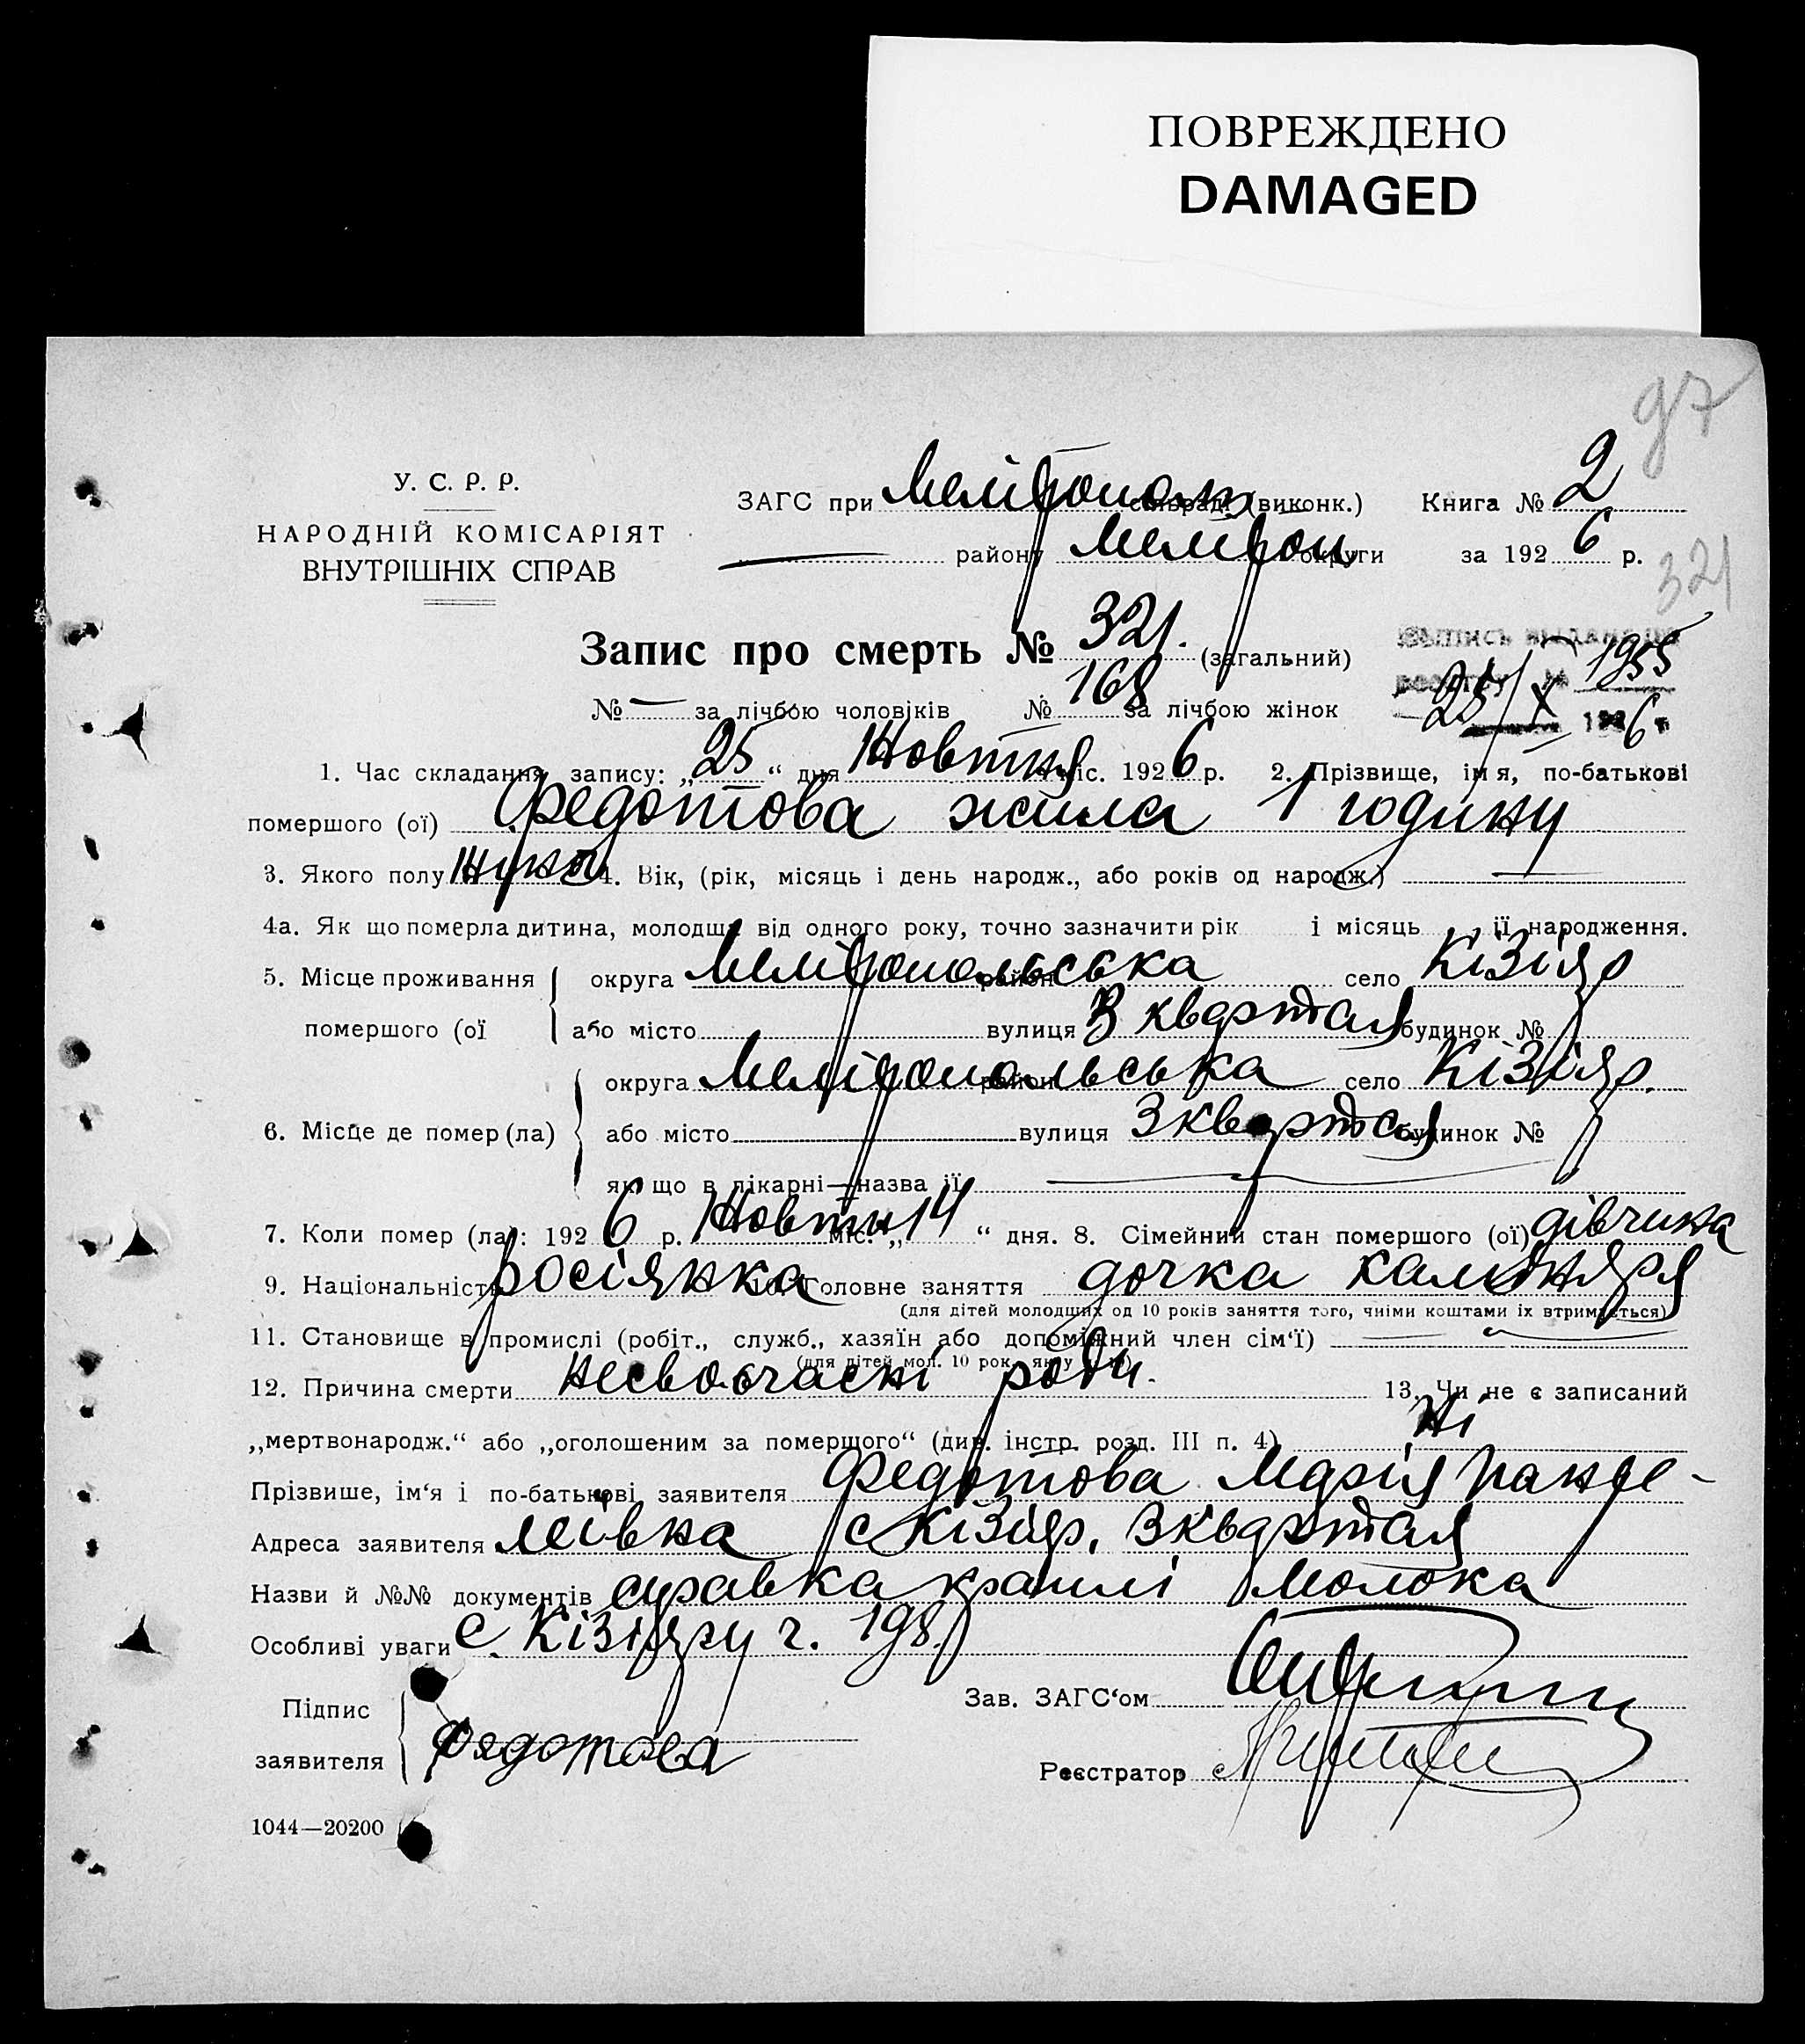 ПОВРЕЖДЕНО
DAMAGED
97
У. С. Р. Р.
НАРОДНІЙ КОМІСАРІЯТ
ВНУТРІШНІХ СПРАВ
ЗАГС при Мелітополь сільраді (виконк.) Книга № 2
району Мелітоп округи за 1926 р.
321
Запис про смерть № 321. (загальний)
№ — за лічбою чоловіків № 168 за лічбою жінок
Выпись выдана по
1955
25/X 1926 г.
1. Час складання запису: „25“ дня Жовтня міс. 1926 р. 2. Прізвище, ім'я, по-батькові
помершого (ої) Федотова жила 1 годину
3. Якого полу 4. Вік, (рік, місяць і день народж., або років од народж.) —
4а. Як що померла дитина, молодша від одного року, точно зазначити рік і місяць її народження.
5. Місце проживання округа Мелітопольська район село Кізіяр
помершого (ої або місто вулиця 3 квартал будинок №
округа Мелітопольська район село Кізіяр.
6. Місце де помер (ла) або місто вулиця 3 квартал будинок №
як що в лікарні—назва її —
7. Коли помер (ла): 1926 р. Жовтн міс. „14“ дня. 8. Сімейний стан помершого (ої) дівчина
9. Національність росіянка 10. Головне заняття дочка
(для дітей молодших од 10 років заняття того, чиїми коштами їх втримується)
11. Становище в промислі (робіт., служб., хазяїн або допоміжний член сім‘ї) —
(для дітей мол. 10 рок.
12. Причина смерти несвоєчасні роди. 13. Чи не є записаний
„мертвонародж.“ або „оголошеним за помершого“ (див. інстр. розд. III п. 4) Ні
Прізвише, ім‘я і по-батькові заявителя Федотова Марія Панте-
Адреса заявителя леівна с Кізіяр, 3 квартал
Назви й №№ документів справка краплі молока
Особливі уваги с. Кізіяру ч. 198.
Підпис
заявителя Федотова
Зав. ЗАГС‘ом
Реєстратор
1044—20200